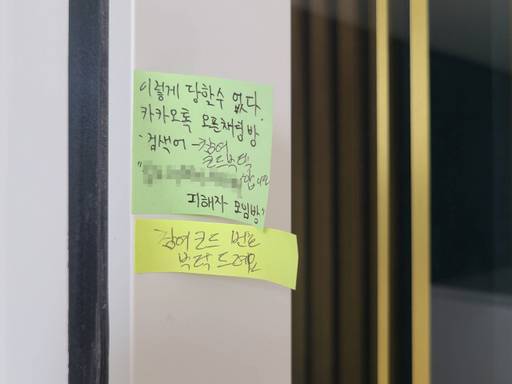 이렇게 당할수 없다.
카카오톡 오픈채팅방
·검색어 - 참여
코드부탁
합니다
피해자 모임방"
참여코드 번호
부탁드려요